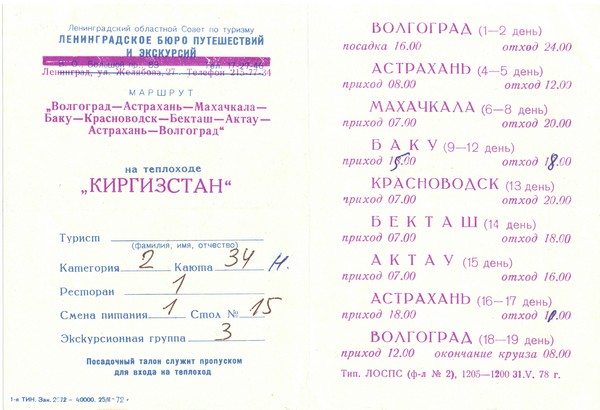 Ленинградский областной Совет по туризму
ЛЕНИНГРАДСКОЕ БЮРО ПУТЕШЕСТВИЙ
И ЭКСКУРСИЙ
В. О. Большой пр.
Ленинград, ул. Желябова, 27. Телефон 215-77-34
МАРШРУТ
„Волгоград—Астрахань—Махачкала—
Баку—Красноводск—Бекташ—Актау—
Астрахань—Волгоград“
на теплоходе
„КИРГИЗСТАН“
Турист
(фамилия, имя, отчество)
Категория 2 Каюта 34 н.
Ресторан 1
Смена питания 1 Стол № 15
Экскурсионная группа 3
Посадочный талон служит пропуском
для входа на теплоход
1-я ТИН. Зак. 2572 — 40000. 25/II-72 г
ВОЛГОГРАД (1—2 день)
посадка 16.00 отход 24.00
АСТРАХАНЬ (4—5 день)
приход 08.00 отход 12.00
МАХАЧКАЛА (6—8 день)
приход 07.00 отход 20.00
БАКУ (9—12 день)
приход 15.00 отход 18.00
КРАСНОВОДСК (13 день)
приход 07.00 отход 20.00
БЕКТАШ (14 день)
приход 07.00 отход 18.00
АКТАУ (15 день)
приход 07.00 отход 16.00
АСТРАХАНЬ (16—17 день)
приход 18.00 отход
ВОЛГОГРАД (18—19 день)
приход 12.00 окончание круиза 08.00
Тип. ЛОСПС (ф-л № 2), 1205—1200 31.V. 78 г.